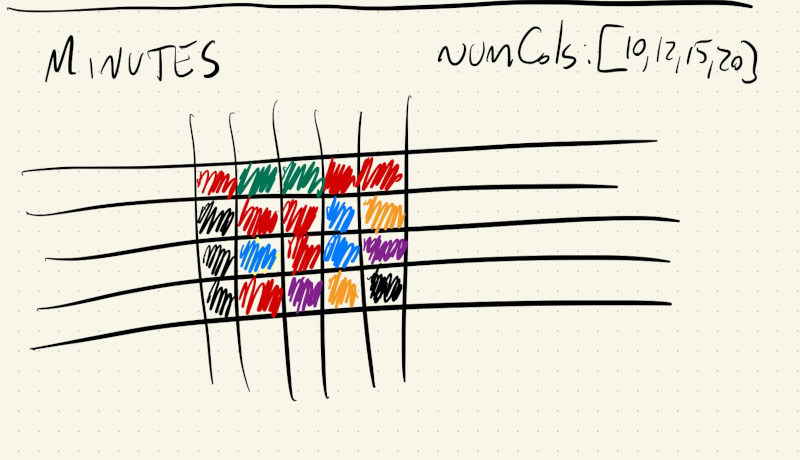 MINUTES
numCols:[10,12,15,20]